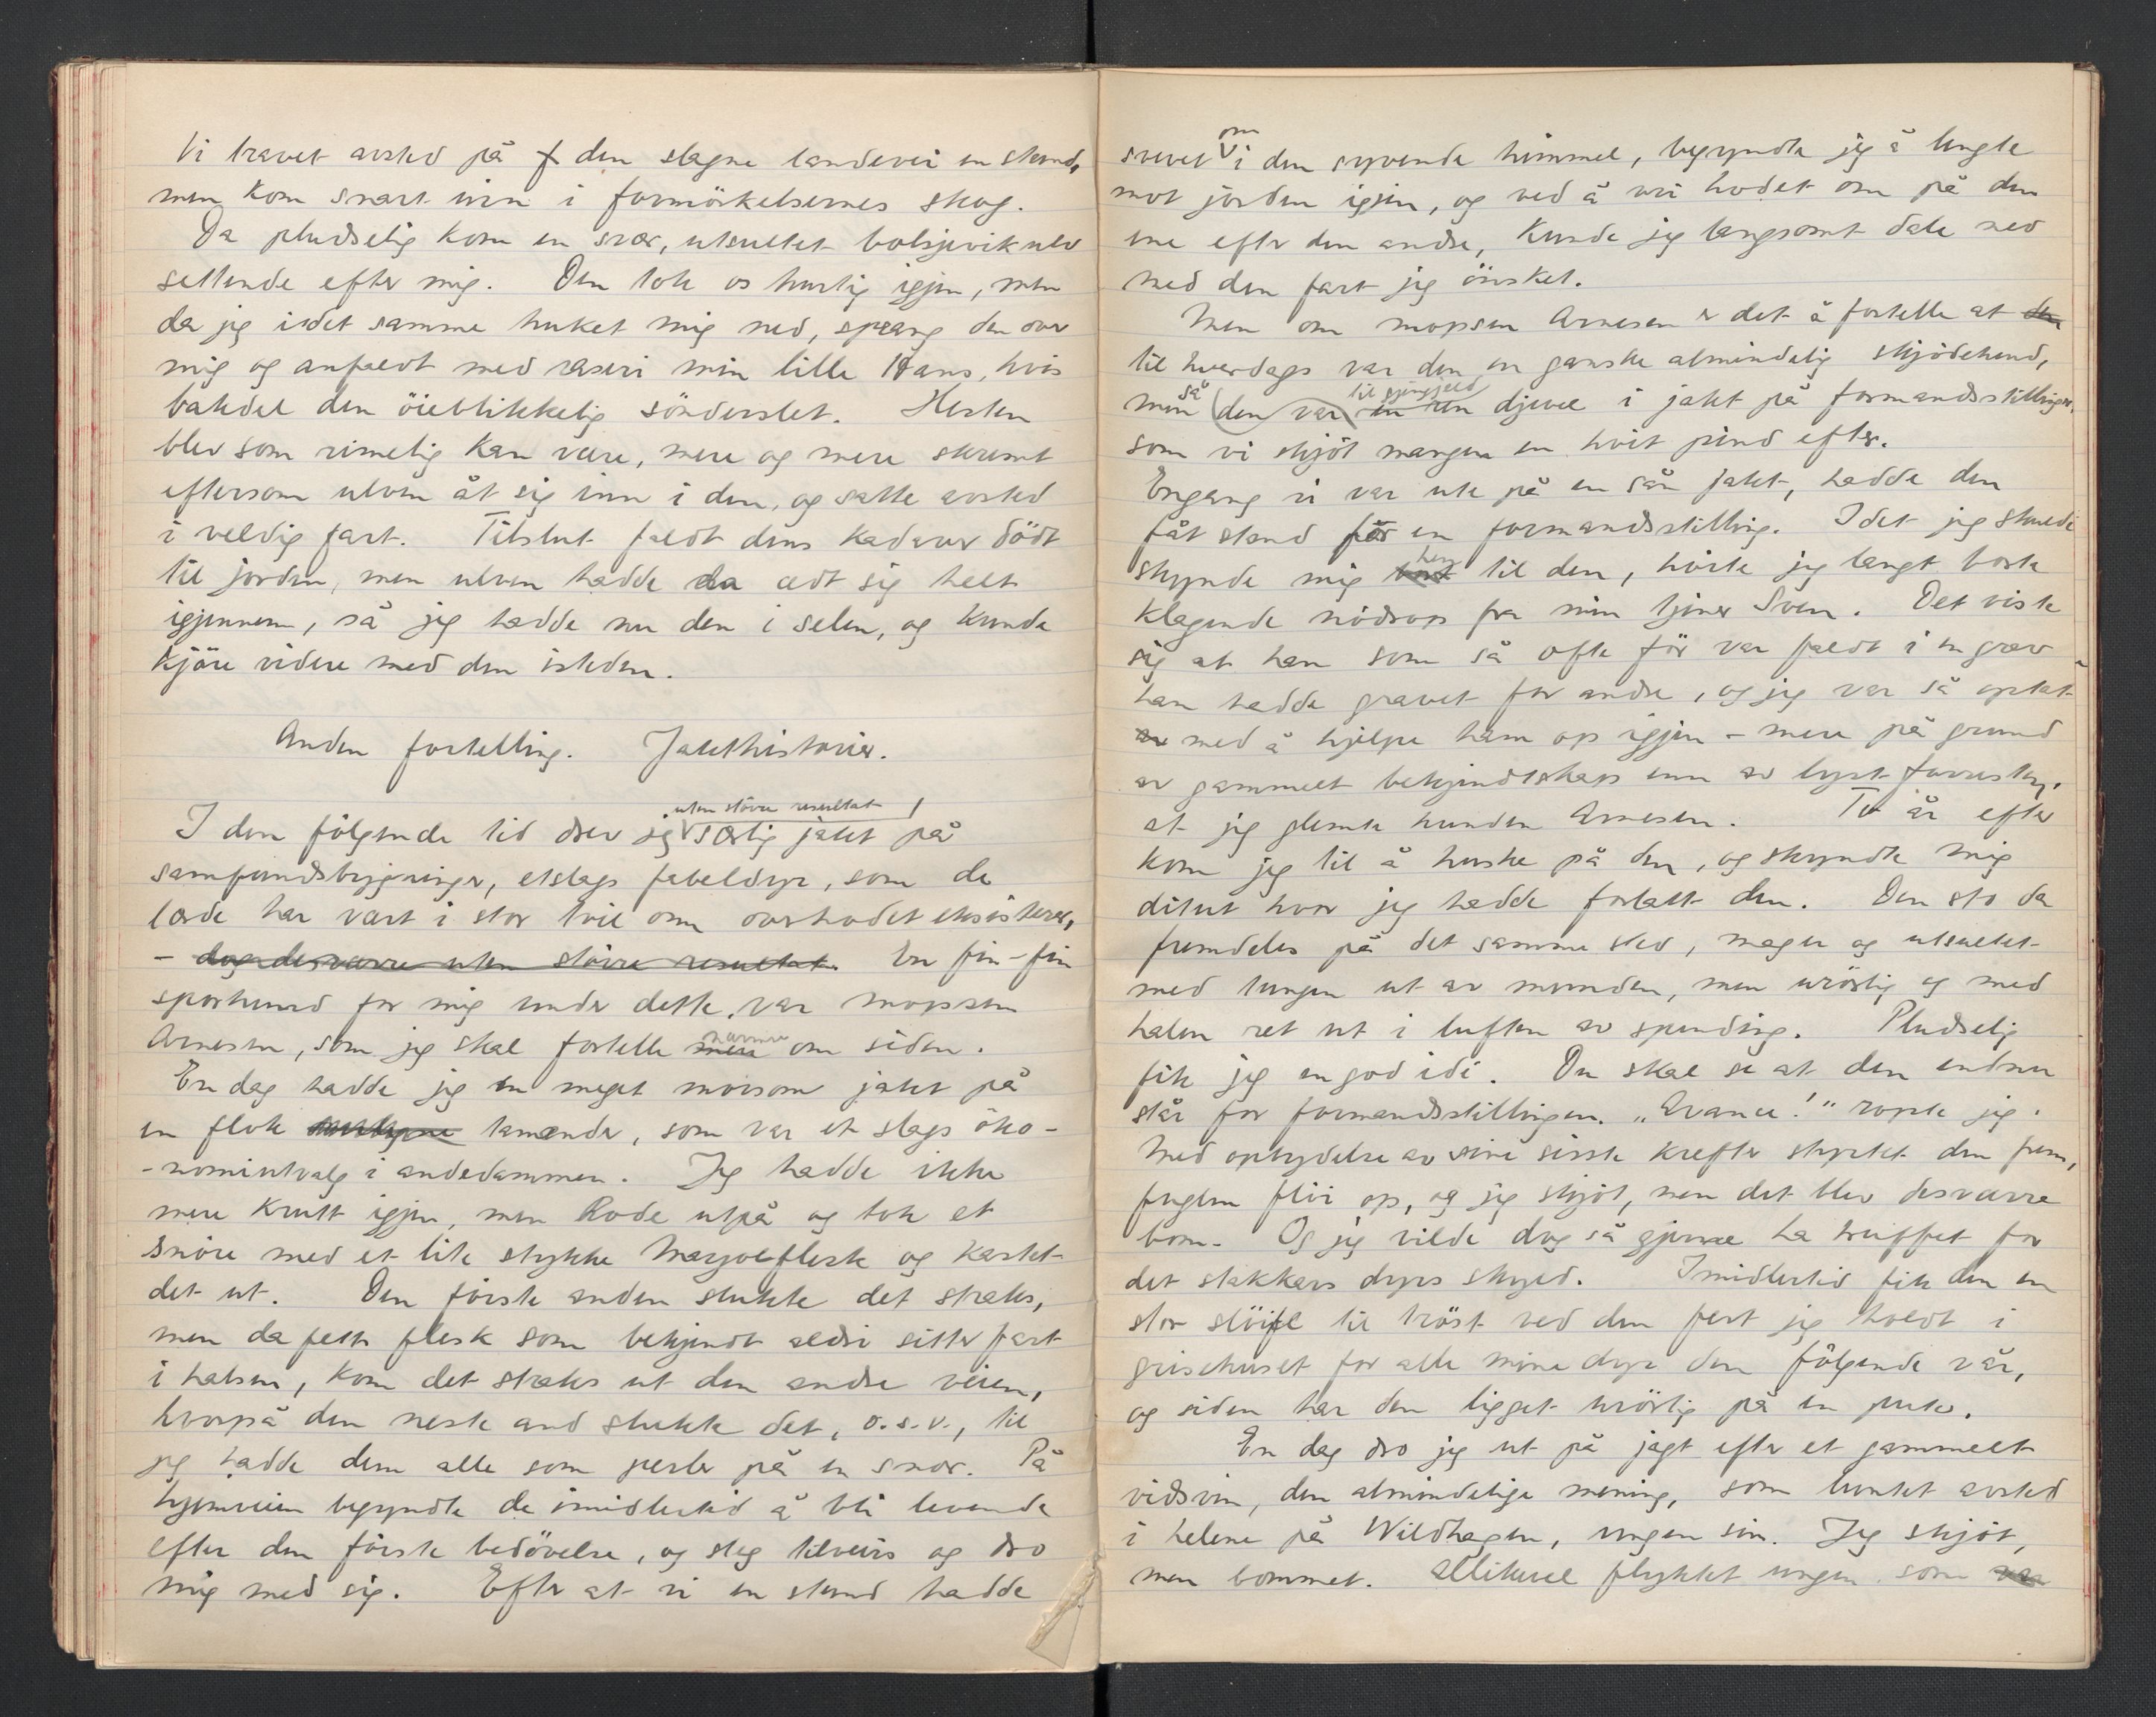 Vi travet avsted på den slagne landevei en stund,
men kom snart inn i formörkelsernes skog.
Da pludselig kom en svær, utsultet bolsjevikulv
settende efter mig. Den tok os hurtig igjen, men
da jeg i det samme huket mig ned, sprang den over
mig og anfaldt med raseri min lille Hans, hvis
bakdel den öieblikkelig sönderslet. Hesten
blev som rimelig kan være, mere og mere skremt
eftersom ulven åt sig inn i den, og satte avsted
i veldig fart. Tilslut faldt dens kadaver dödt
til jorden, men ulven hadde da ædt sig helt
igjennem, så jeg hadde nu den i selen, og kunde
kjöre videre med den isteden.
Anden fortelling. Jakthistorier.
uten större resultat
I den fölgende tid drev jeg særlig jakt på
samfundsbygninger, etslags fabeldyr, som de
lærde har vært i stor tvil om overhodet eksisterer,
- dog desværre uten större resultat. En fin-fin
sporhund for mig under dette, var mopsen
Arnesen, som jeg skal fortelle mere nærmere om siden.
En dag hadde jeg en meget morsom jakt på
en flok tamænder, som var et slags öko-
-nomiutvalg i andedammen. Jeg hadde ikke
mere krutt igjen, men Rode utpå og tok et
snöre med et lite stykke Margoeflesk og kastet
det ut. Den förste anden slukte det straks,
men da fett flesk som bekjendt aldri sitter fast
i halsen, kom det straks ut den andre veien,
hvorpå den neste and slukte det, o.s.v., til
jeg hadde dem alle som perler på en snor. På
hjemveien begyndte de imidlertid å bli levende
efter den förste bedövelse, og steg tilveirs og dro
mig med sig. Efter at vi en stund hadde
svevet om i den syvende himmel, begyndte jeg å lengte
mot jorden igjen, og ved å vri hodet om på den
ene efter den andre, kunde jeg langsomt dale ned
med den fart jeg önsket.
Men om mopsen Arnesen er det å fortelle at den
til hverdags var den en ganske almindelig skjödehund,
men så den var til gjengjeld en ren djevel i jakt på formandsstillinger,
som vi skjöt mangen en hvit pind efter.
Engang vi var ute på en sån jakt, hadde den
fåt stand for en formandsstilling. Idet jeg skulde
skynde mig bort hen til den, hörte jeg langt borte
klagende nödrop fra min tjener Sven. Det viste
sig at han som så ofte för var faldt i en grav
han hadde gravet for andre, og jeg var så optat
av med å hjelpe ham op igjen - mere på grund
av gammelt bekjendtskap enn av lyst forresten,
at jeg glemte hunden Arnesen. To år efter
kom jeg til å huske på den, og skyndte mig
ditut hvor jeg hadde forlatt den. Den sto da
fremdeles på det samme sted, mager og utsultet
med tungen ut av munden, men urörlig og med
halen ret ut i luften av spending. Pludselig
fik jeg en god idé. Du skal se at den endnu
står for formandsstillingen. „Avance!" ropte jeg.
Med opbydelse av sine siste krefter styrtet den frem,
fuglen flöi op, og jeg skjöt, men det blev desværre
bom. Og jeg vilde dog så gjerne ha truffet for
det stakkars dyrs skyld. Imidlertid fik den en
stor slöife til tröst ved den fest jeg holdt i
grisehuset for alle mine dyr den fölgende vår,
og siden har den ligget urörlig på en pute.
En dag dro jeg ut på jagt efter et gammelt
vildsvin, den almindelige mening, som luntet avsted
i helene på Wildhagen, ungen sin. Jeg skjöt,
men bommet. Allikevel flyktet ungen som var